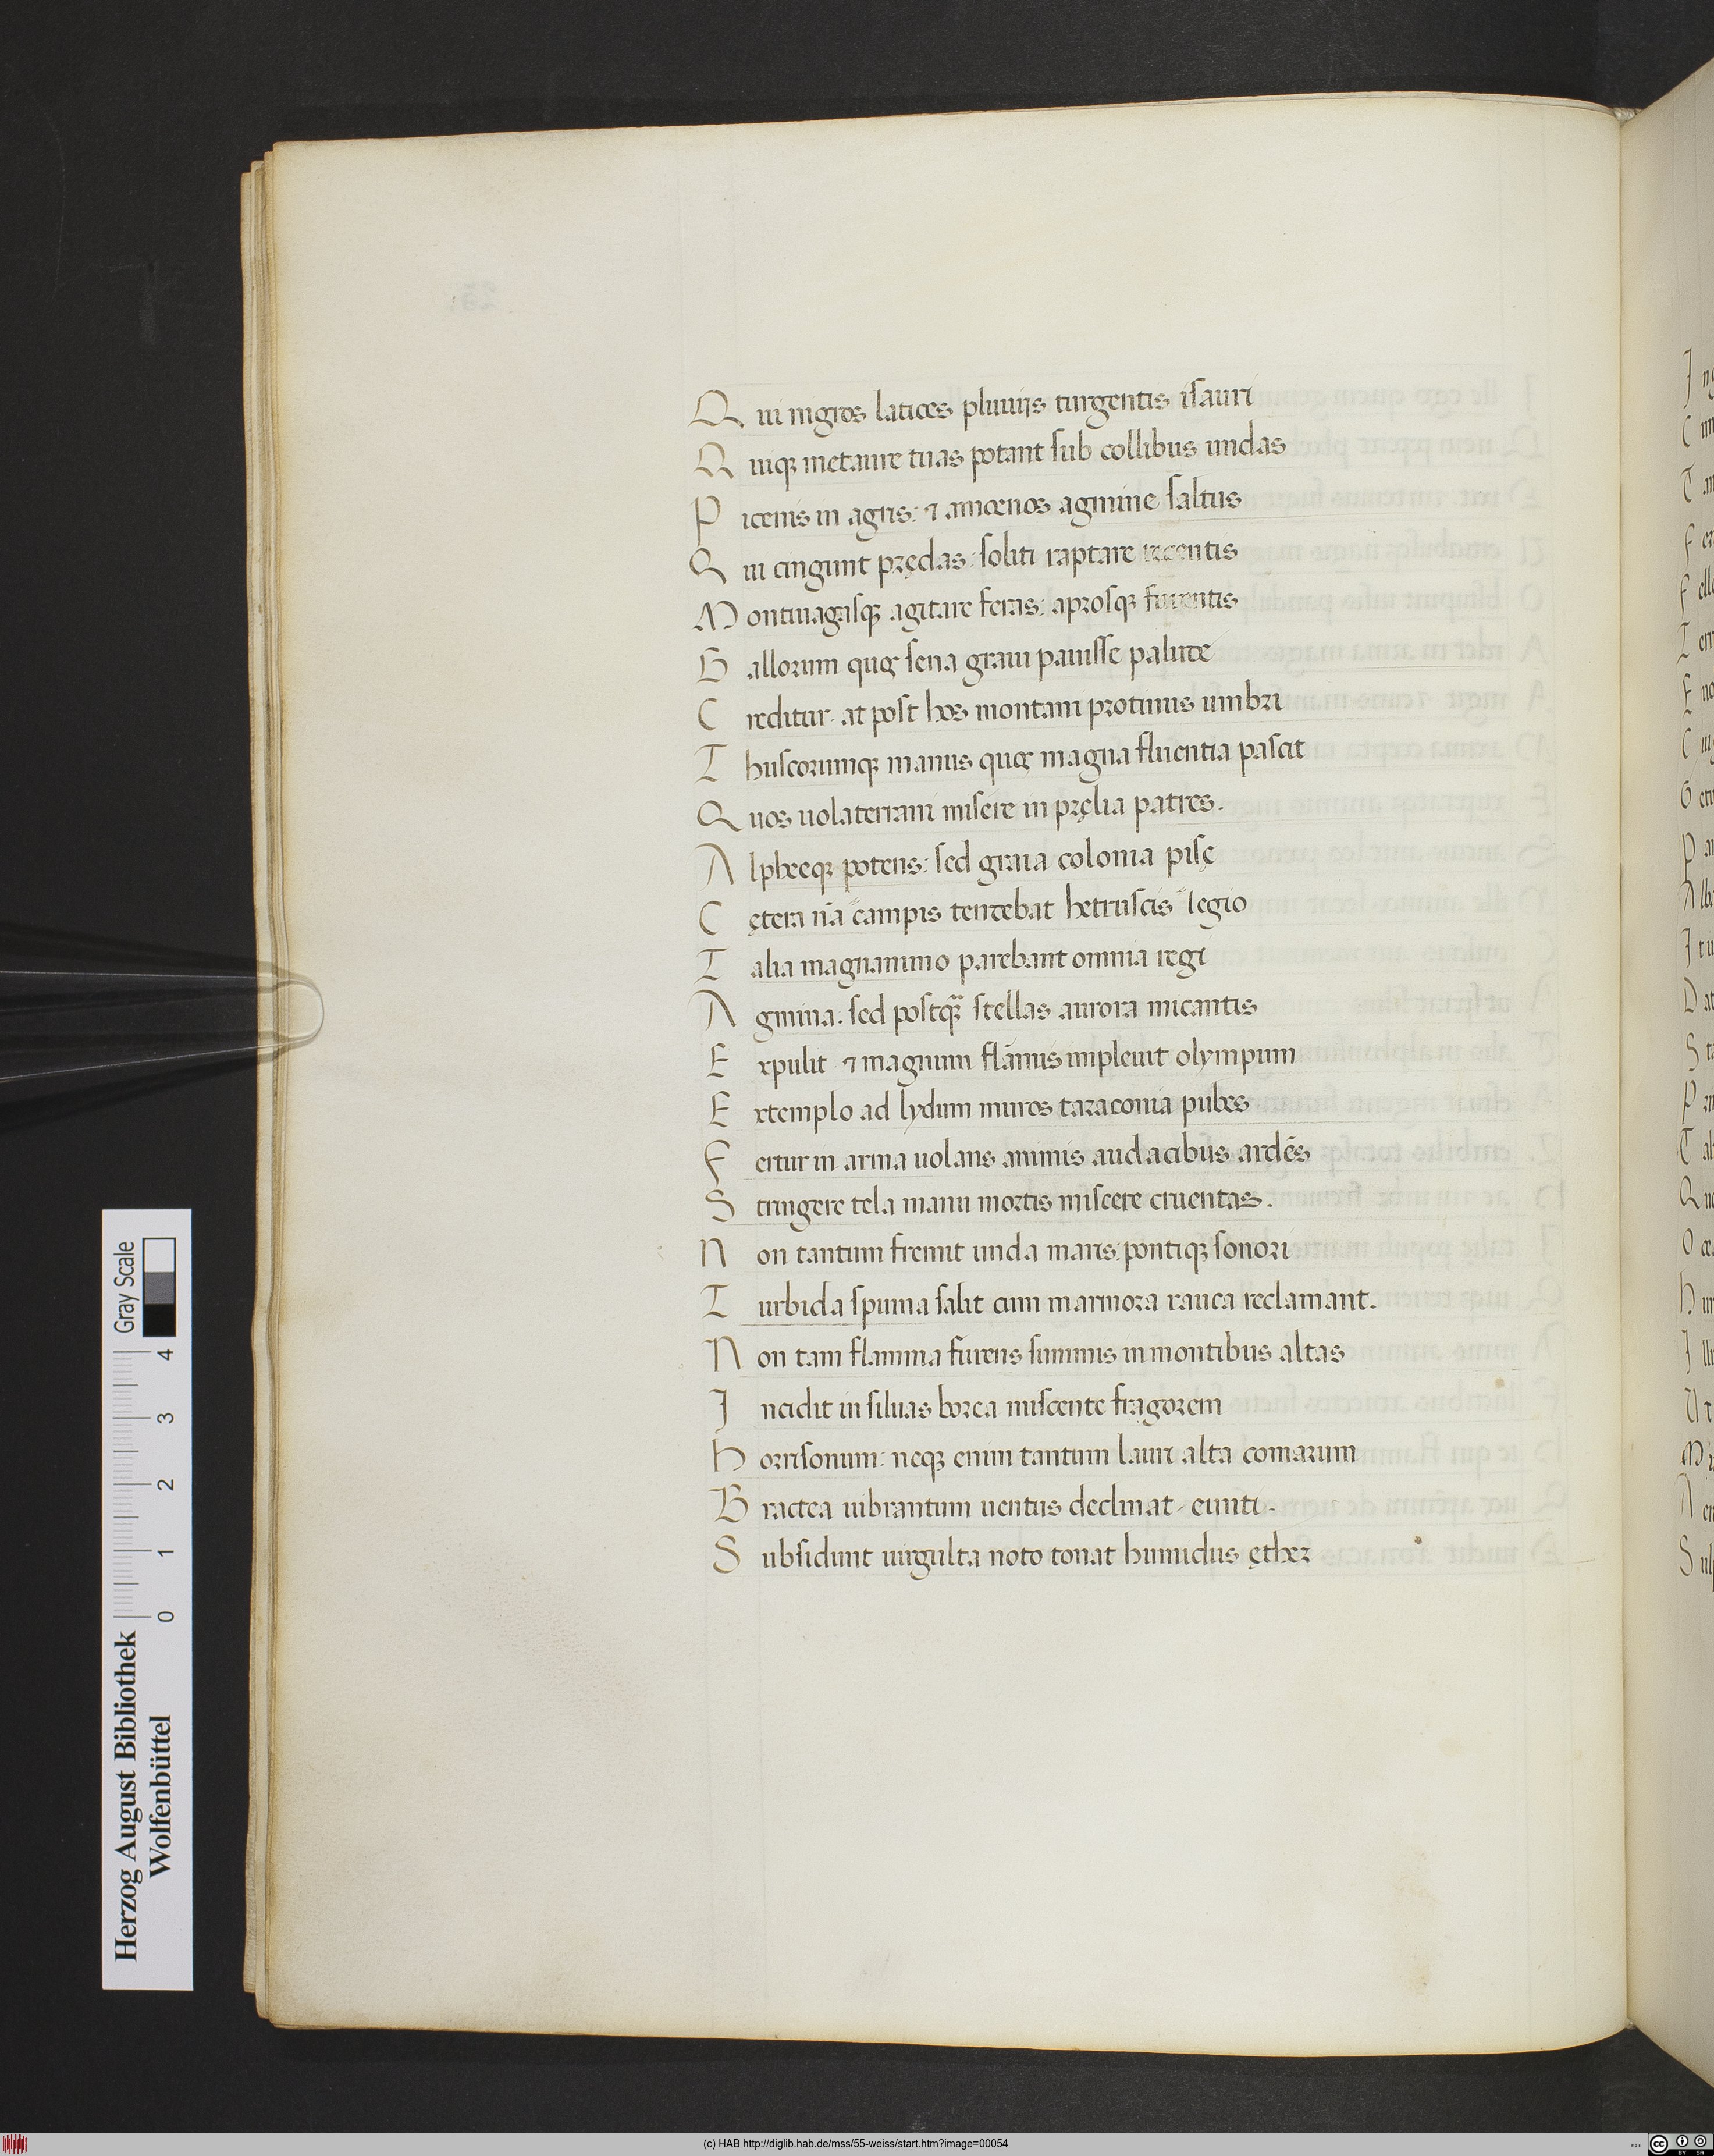 Qui nigros latices pluuijs turgentis isauri
Quiqꝫ metaure tuas potant sub collibus undas
Picenis in agris: ⁊ amoenos agmine saltus
Qui cingunt prędas: soliti raptare recentis
Montiuagasqꝫ agitare feras: aprosqꝫ furentis
Gallorum quę sena graui pauisse palude
Creditur. at post hos montani protinus umbri
Thuscorumqꝫ manus quę magna fluentia pascit
Quos uolaterrani misere in pręlia patres.
Alpheeqꝫ potens: sed graia colonia pisę
Cętera nā campis tendebat hetruscis legio
Talia magnanimo parebant omnia regi
Agmina. sed postqꝫ̄ stellas aurora micantis
Expulit ⁊ magnum flāmis impleuit olympum
Extemplo ad lydum muros taraconia pubes
Fertur in arma uolans animis audacibus ardēs
Stringere tela manu mortis miscere cruentas.
Non tantum fremit unda maris: pontiqꝫ sonori
Turbida spuma salit cum marmora rauca reclamant.
Non tam flamma furens summis in montibus altas
Incidit in siluas borea miscente fragorem
Horrisonum: neqꝫ enim tantum lauri alta comarum
Bractea uibrantum uentus declinat. eunti.
Subsidunt uirgulta noto tonat humidus ęther
Herzog August Bibliothek
Wolfenbüttel
0 1 2 3 4
Gray Scale
(c) HAB http://diglib.hab.de/mss/55-weiss/start.htm?image=00054